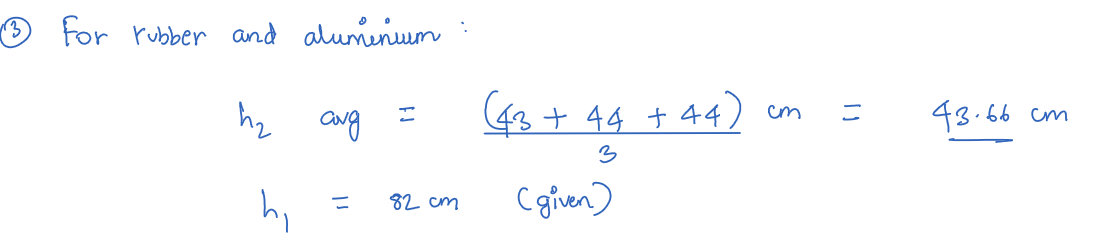 ③ For rubber and aluminium :
h₂ avg = (43 + 44 + 44) cm / 3 = 43.66 cm
h₁ = 82 cm (given)